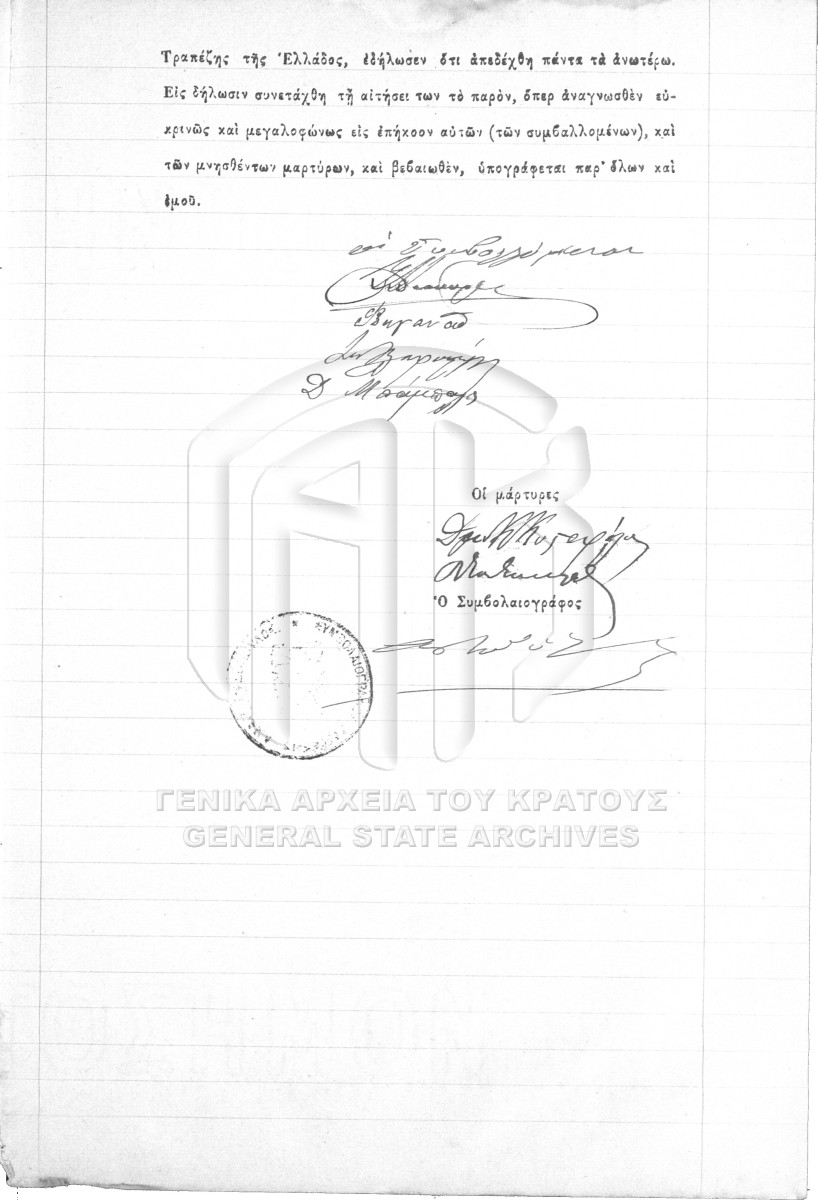 Τραπέζης τῆς Ἑλλάδος, ἐδήλωσεν ὅτι ἀπεδέχθη πάντα τὰ ἀνωτέρω.
Εἰς δήλωσιν συνετάχθη τῇ αἰτήσει των τὸ παρὸν, ὅπερ ἀναγνωσθὲν εὐ-
κρινῶς καὶ μεγαλοφώνως εἰς ἐπήκοον αὐτῶν (τῶν συμβαλλομένων), καὶ
τῶν μνησθέντων μαρτύρων, καὶ βεβαιωθὲν, ὑπογράφεται παρ' ὅλων καὶ
ἐμοῦ.
οἱ Συμβαλλόμενοι
Δ Μπάμπαλη
Οἱ μάρτυρες
Ὁ Συμβολαιογράφος
ΣΥΜΒΟΛΑΙΟΓΡΑΦ
ΓΕΝΙΚΑ ΑΡΧΕΙΑ ΤΟΥ ΚΡΑΤΟΥΣ
GENERAL STATE ARCHIVES